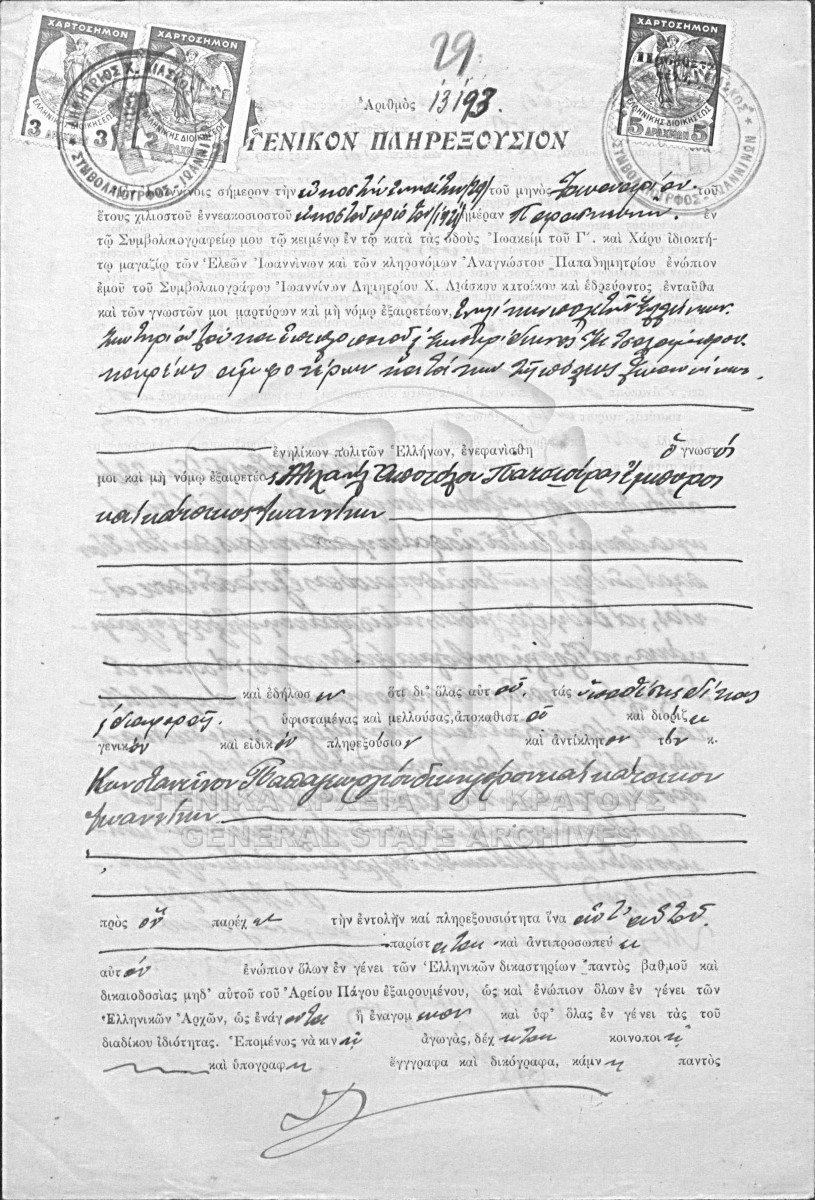 29.
ΧΑΡΤΟΣΗΜΟΝ
ΧΑΡΤΟΣΗΜΟΝ
ΧΑΡΤΟΣΗΜΟΝ
ΕΛΛΗΝΙΚΗΣ ΔΙΟΙΚΗΣΕΩΣ
3 3
2 ΔΡΑΧΜΑΙ
5 ΔΡΑΧΜΑΙ 5
ΔΗΜΗΤΡΙΟΣ Χ. ΛΙΑΣΚΟΣ
ΣΥΜΒΟΛΑΙΟΓΡΑΦΟΣ ΙΩΑΝΝΙΝΩΝ
Ἀριθμὸς 13193.
ΓΕΝΙΚΟΝ ΠΛΗΡΕΞΟΥΣΙΟΝ
σήμερον τὴν εἰκοστὴν ἐννάτην /29/ τοῦ μηνὸς Ἰανουαρίου τοῦ
ἔτους χιλιοστοῦ ἐννεακοσιοστοῦ εἰκοστοῦ πρώτου /1921/ ἡμέραν Παρασκευὴν. ἐν
τῷ Συμβολαιογραφείῳ μου τῷ κειμένῳ ἐν τῷ κατὰ τὰς ὁδοὺς Ἰωακεὶμ τοῦ Γ΄. καὶ Χάρυ ἰδιοκτή-
τῳ μαγαζίῳ τῶν Ἐλεῶν Ἰωαννίνων καὶ τῶν κληρονόμων Ἀναγνώστου Παπαδημητρίου ἐνώπιον
ἐμοῦ τοῦ Συμβολαιογράφου Ἰωαννίνων Δημητρίου Χ. Λιάσκου κατοίκου καὶ ἑδρεύοντος ἐνταῦθα
καὶ τῶν γνωστῶν μοι μαρτύρων καὶ μὴ νόμῳ ἐξαιρετέων, ἐνηλίκων πολιτῶν Ἑλλήνων.
κουρέως ἀμφοτέρων κατοίκων τῆς πόλεως Ἰωαννίνων.
ἐνηλίκων πολιτῶν Ἑλλήνων, ἐνεφανίσθη ὁ γνωστός
μοι καὶ μὴ νόμῳ ἐξαιρετέος Ἀποστόλου ἔμπορος
καὶ κάτοικος Ἰωαννίνων
καὶ ἐδήλωσεν ὅτι δι' ὅλας αὐτοῦ. τάς ὑποθέσεις δίκας
ἢ διαφοράς. ὑφισταμένας καὶ μελλούσας, ἀποκαθιστᾷ καὶ διορίζει
γενικὸν καὶ εἰδικὸν πληρεξούσιον καὶ ἀντίκλητον τὸν κ.
Κωνσταντῖνον δικηγόρον καὶ κάτοικον
Ἰωαννίνων
ΓΕΝΙΚΑ ΑΡΧΕΙΑ ΤΟΥ ΚΡΑΤΟΥΣ
GENERAL STATE ARCHIVES
πρὸς ὃν παρέχει τὴν ἐντολὴν καὶ πληρεξουσιότητα ἵνα ἀντ' αὐτοῦ.
παρίσταται καὶ ἀντιπροσωπεύῃ
αὐτὸν ἐνώπιον ὅλων ἐν γένει τῶν Ἑλληνικῶν δικαστηρίων παντὸς βαθμοῦ καὶ
δικαιοδοσίας μηδ' αὐτοῦ τοῦ Ἀρείου Πάγου ἐξαιρουμένου, ὡς καὶ ἐνώπιον ὅλων ἐν γένει τῶν
Ἑλληνικῶν Ἀρχῶν, ὡς ἐνάγοντα ἢ ἐναγόμενον καὶ ὑφ' ὅλας ἐν γένει τὰς τοῦ
διαδίκου ἰδιότητας. Ἑπομένως νὰ κινῇ ἀγωγάς, δέχεται κοινοποιῇ
καὶ ὑπογράφῃ ἔγγραφα καὶ δικόγραφα, κάμνῃ παντὸς